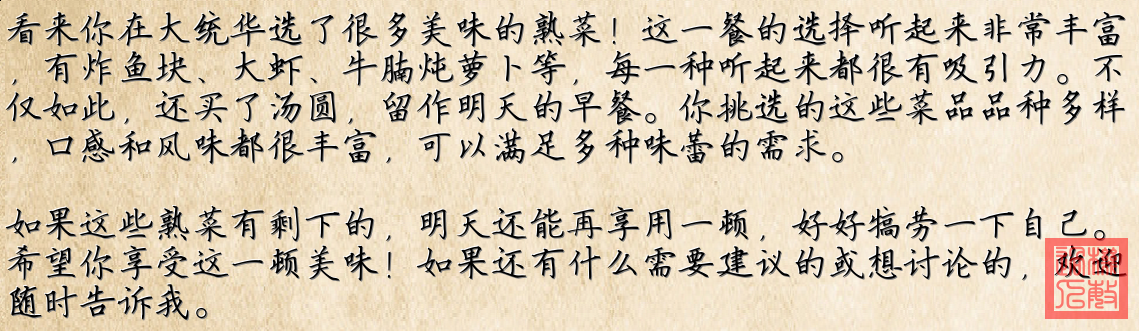 看来你在大统华选了很多美味的熟菜！这一餐的选择听起来非常丰富
，有炸鱼块、大虾、牛腩炖萝卜等，每一种听起来都很有吸引力。不
仅如此，还买了汤圆，留作明天的早餐。你挑选的这些菜品品种多样
，口感和风味都很丰富，可以满足多种味蕾的需求。
如果这些熟菜有剩下的，明天还能再享用一顿，好好犒劳一下自己。
希望你享受这一顿美味！如果还有什么需要建议的或想讨论的，欢迎
随时告诉我。